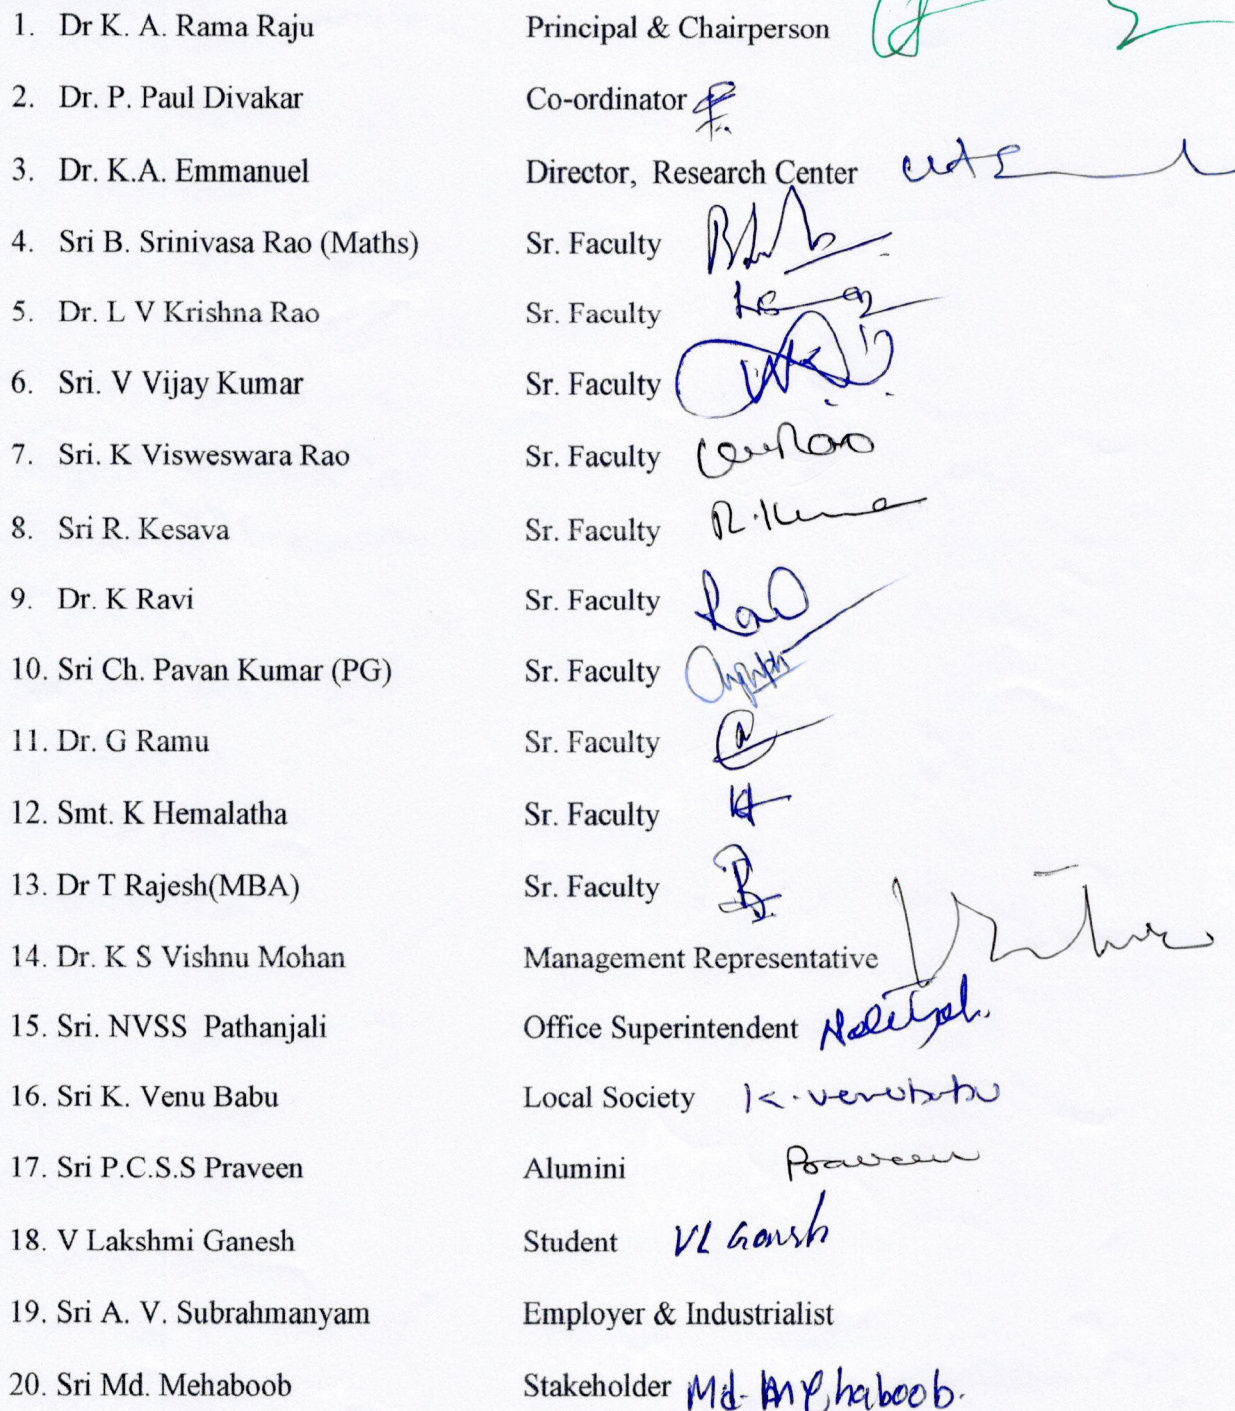 1. Dr K. A. Rama Raju Principal & Chairperson
2. Dr. P. Paul Divakar Co-ordinator
3. Dr. K.A. Emmanuel Director, Research Center
4. Sri B. Srinivasa Rao (Maths) Sr. Faculty
5. Dr. L V Krishna Rao Sr. Faculty
6. Sri. V Vijay Kumar Sr. Faculty
7. Sri. K Visweswara Rao Sr. Faculty
8. Sri R. Kesava Sr. Faculty
9. Dr. K Ravi Sr. Faculty
10. Sri Ch. Pavan Kumar (PG) Sr. Faculty
11. Dr. G Ramu Sr. Faculty
12. Smt. K Hemalatha Sr. Faculty
13. Dr T Rajesh(MBA) Sr. Faculty
14. Dr. K S Vishnu Mohan Management Representative
15. Sri. NVSS Pathanjali Office Superintendent
16. Sri K. Venu Babu Local Society K. Venubabu
17. Sri P.C.S.S Praveen Alumini Praveen
18. V Lakshmi Ganesh Student VL Ganesh
19. Sri A. V. Subrahmanyam Employer & Industrialist
20. Sri Md. Mehaboob Stakeholder Md. Mehaboob.